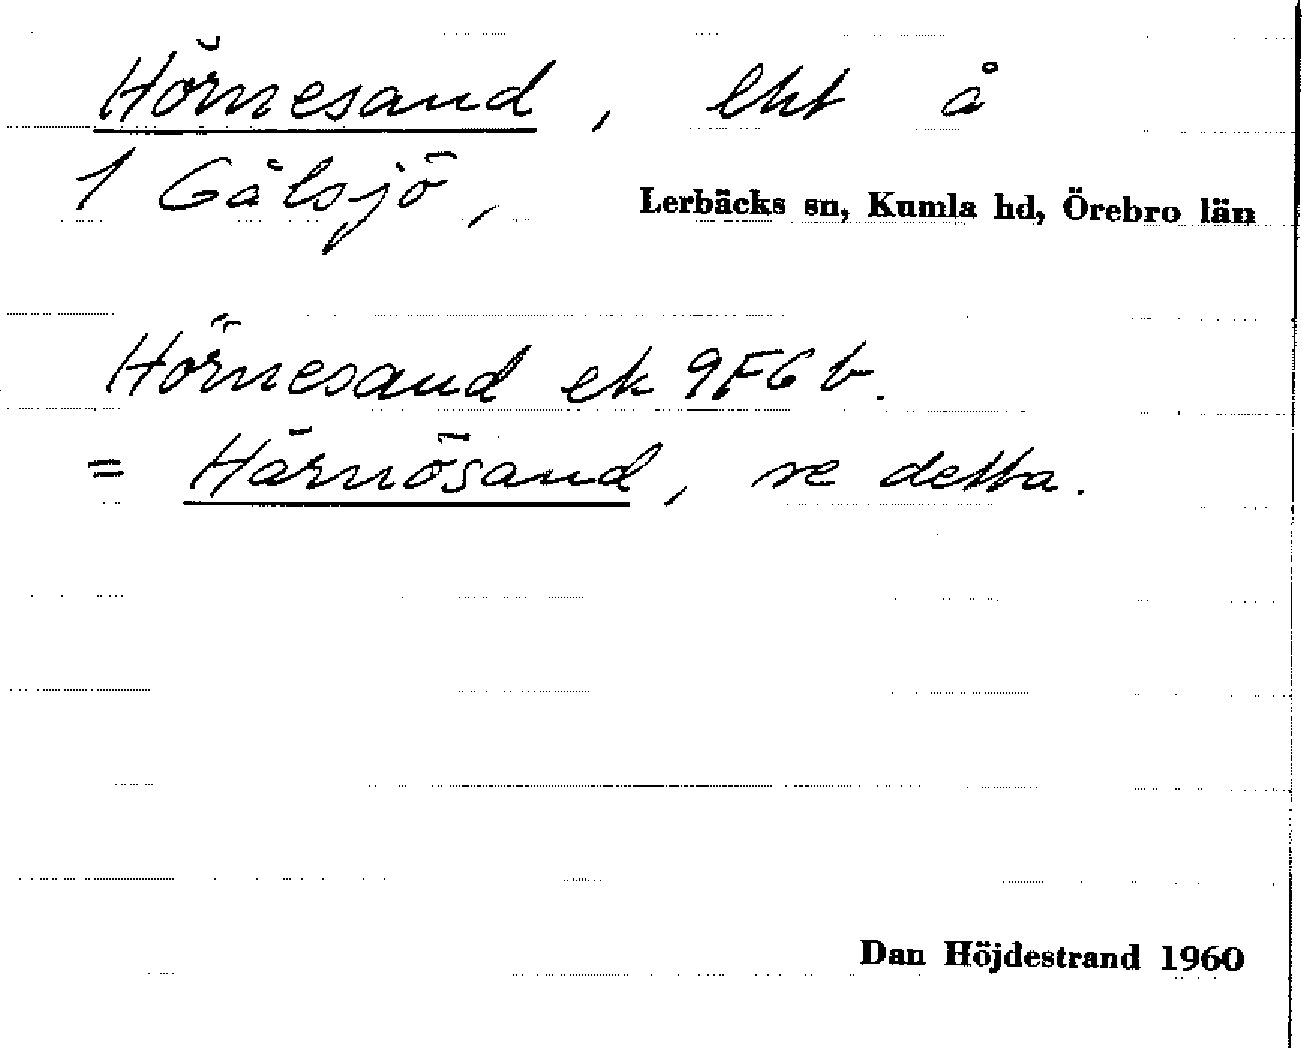 Hörnesand, lht å
1 Gälsjö, Lerbäcks sn, Kumla hd, Örebro län
Hörnesand ek 9F6 b.
= Härnösand, se detta.
Dan Höjdestrand 1960